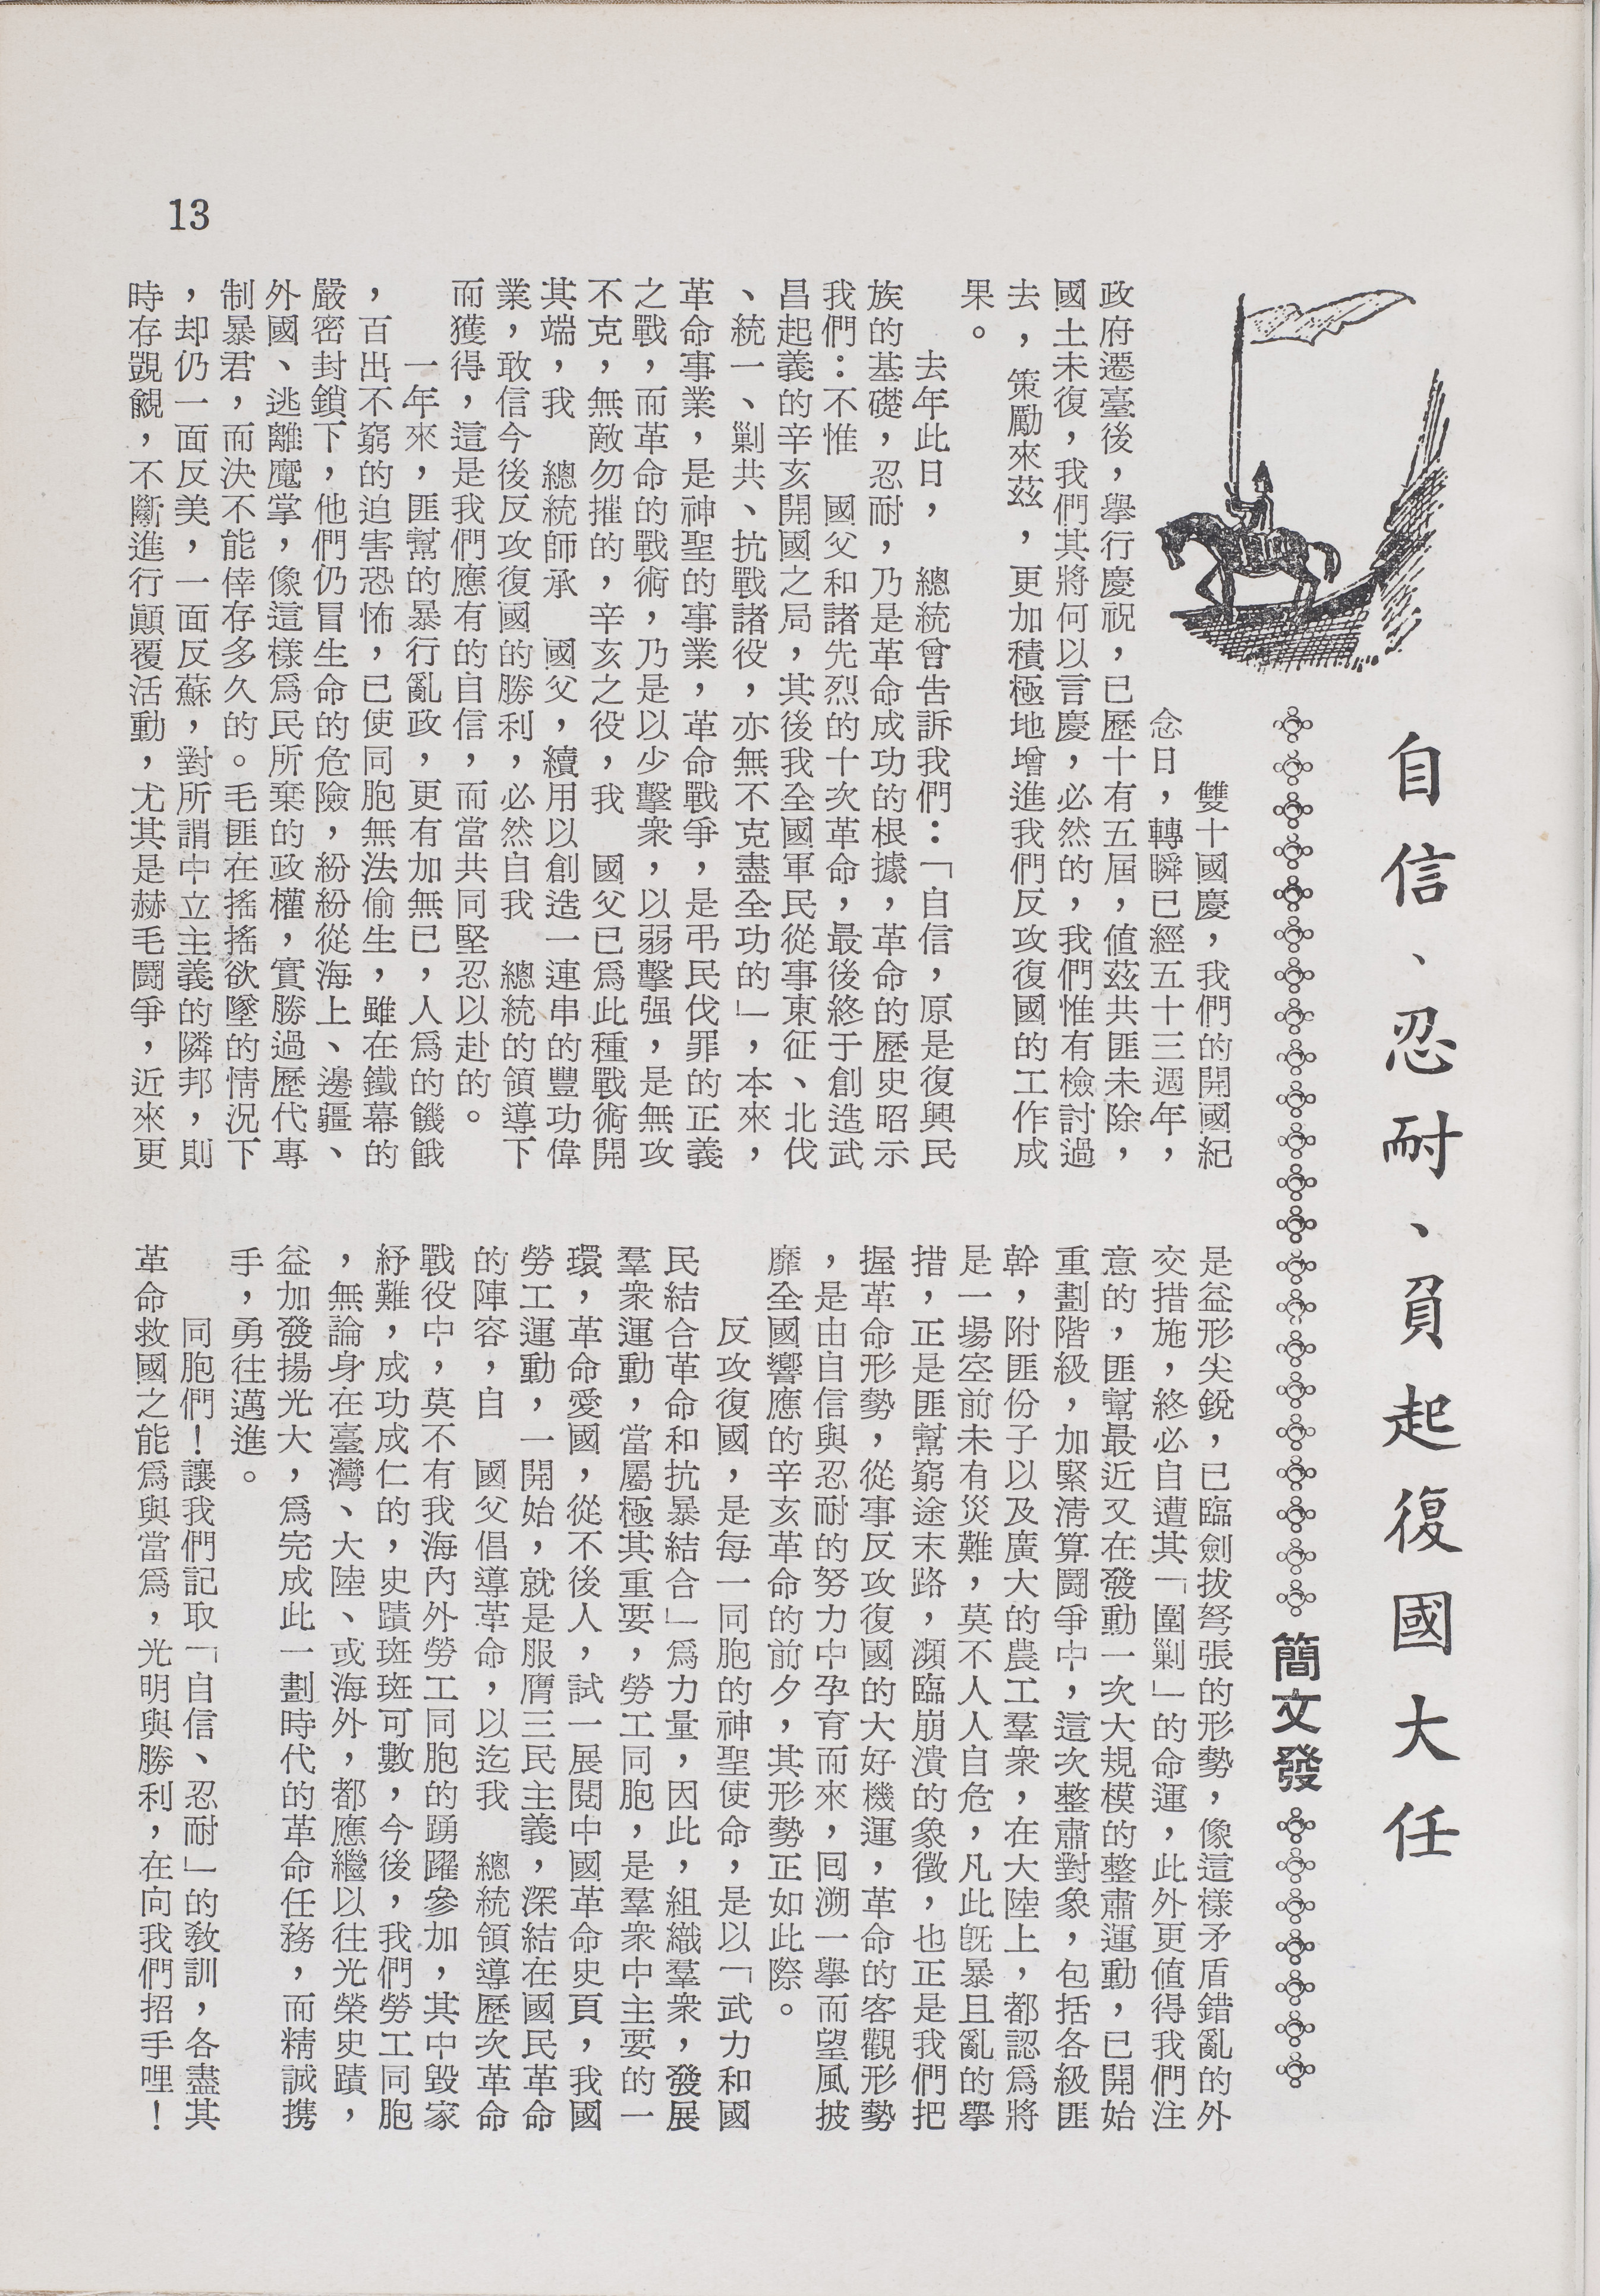 自信、忍耐、負起復國大任
簡文發
雙十國慶，我們的開國紀
念日，轉瞬已經五十三週年，
政府遷臺後，舉行慶祝，已歷十有五屆，值茲共匪未除，
國土未復，我們其將何以言慶，必然的，我們惟有檢討過
去，策勵來茲，更加積極地增進我們反攻復國的工作成
果。
去年此日，　總統曾告訴我們：「自信，原是復興民
族的基礎，忍耐，乃是革命成功的根據，革命的歷史昭示
我們：不惟　國父和諸先烈的十次革命，最後終于創造武
昌起義的辛亥開國之局，其後我全國軍民從事東征、北伐
、統一、剿共、抗戰諸役，亦無不克盡全功的」，本來，
革命事業，是神聖的事業，革命戰爭，是弔民伐罪的正義
之戰，而革命的戰術，乃是以少擊衆，以弱擊强，是無攻
不克，無敵勿摧的，辛亥之役，我　國父已爲此種戰術開
其端，我　總統師承　國父，續用以創造一連串的豐功偉
業，敢信今後反攻復國的勝利，必然自我　總統的領導下
而獲得，這是我們應有的自信，而當共同堅忍以赴的。
一年來，匪幫的暴行亂政，更有加無已，人爲的饑餓
，百出不窮的迫害恐怖，已使同胞無法偷生，雖在鐵幕的
嚴密封鎖下，他們仍冒生命的危險，紛紛從海上、邊疆、
外國、逃離魔掌，像這樣爲民所棄的政權，實勝過歷代專
制暴君，而決不能倖存多久的。毛匪在搖搖欲墜的情況下
，却仍一面反美，一面反蘇，對所謂中立主義的隣邦，則
時存覬覦，不斷進行顚覆活動，尤其是赫毛鬪爭，近來更
是益形尖銳，已臨劍拔弩張的形勢，像這樣矛盾錯亂的外
交措施，終必自遭其「圍剿」的命運，此外更值得我們注
意的，匪幫最近又在發動一次大規模的整肅運動，已開始
重劃階級，加緊淸算鬪爭中，這次整肅對象，包括各級匪
幹，附匪份子以及廣大的農工羣衆，在大陸上，都認爲將
是一場空前未有災難，莫不人人自危，凡此旣暴且亂的擧
措，正是匪幫窮途末路，瀕臨崩潰的象徵，也正是我們把
握革命形勢，從事反攻復國的大好機運，革命的客觀形勢
，是由自信與忍耐的努力中孕育而來，囘溯一擧而望風披
靡全國響應的辛亥革命的前夕，其形勢正如此際。
反攻復國，是每一同胞的神聖使命，是以「武力和國
民結合革命和抗暴結合」爲力量，因此，組織羣衆，發展
羣衆運動，當屬極其重要，勞工同胞，是羣衆中主要的一
環，革命愛國，從不後人，試一展閱中國革命史頁，我國
勞工運動，一開始，就是服膺三民主義，深結在國民革命
的陣容，自　國父倡導革命，以迄我　總統領導歷次革命
戰役中，莫不有我海內外勞工同胞的踴躍參加，其中毀家
紓難，成功成仁的，史蹟斑斑可數，今後，我們勞工同胞
，無論身在臺灣、大陸、或海外，都應繼以往光榮史蹟，
益加發揚光大，爲完成此一劃時代的革命任務，而精誠携
手，勇往邁進。
同胞們！讓我們記取「自信、忍耐」的敎訓，各盡其
革命救國之能爲與當爲，光明與勝利，在向我們招手哩！
13